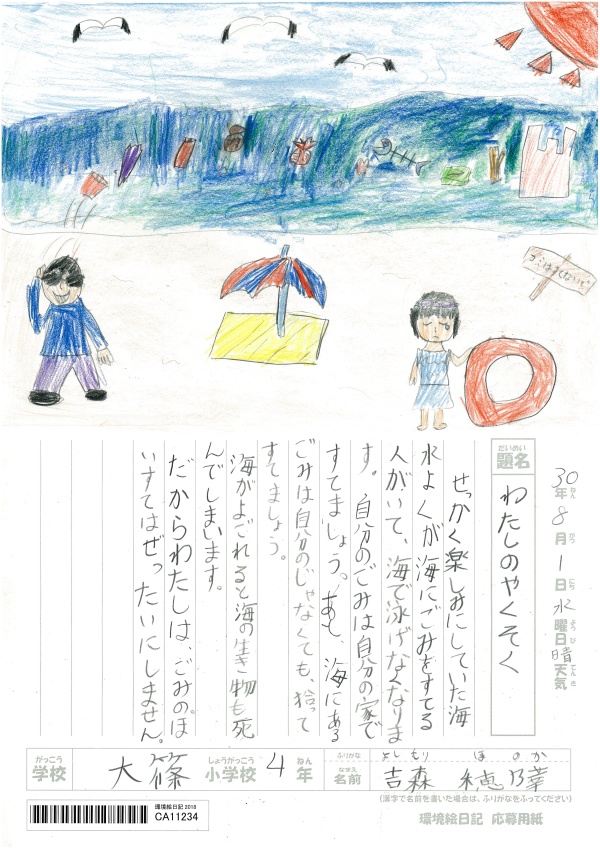 ゴミはすてないで
30年8月1日水曜日晴天気
ねん がつ にち ようび てんき
だいめい
題名 わたしのやくそく
せっかく楽しみにしていた海
水よくが海にごみをすてる
人がいて、海で泳げなくなりま
す。自分のごみは自分の家で
すてましょう。あと、海にある
ごみは自分のじゃなくても、拾って
すてましょう。
海がよごれると海の生き物も死
んでしまいます。
だからわたしは、ごみのぽ
いすてはぜったいにしません。
がっこう しょうがっこう ねん ふりがな よしもり ほのか
学校 大篠 小学校 4年 なまえ 名前 吉森 穂乃華
(漢字で名前を書いた場合は、ふりがなをふってください)
環境絵日記 2018
CA11234
環境絵日記 応募用紙